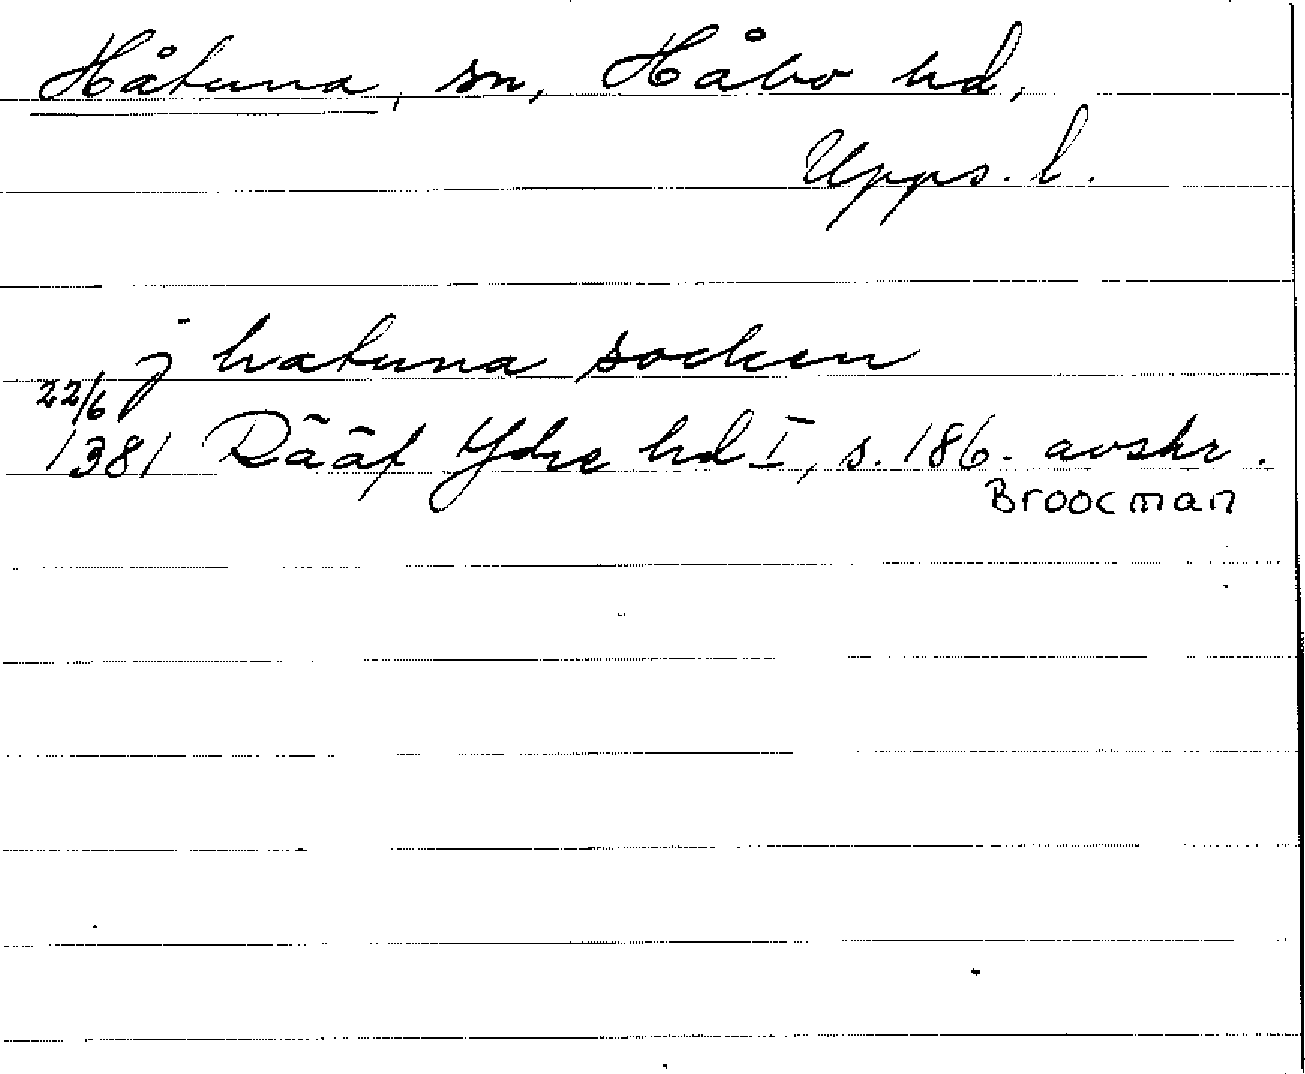 Håtuna, sn, Håbo hd,
Upps. l.
j hatuna socken
22/6
1381 Rääf Ydre hd I, s. 186. avskr.
Broocman